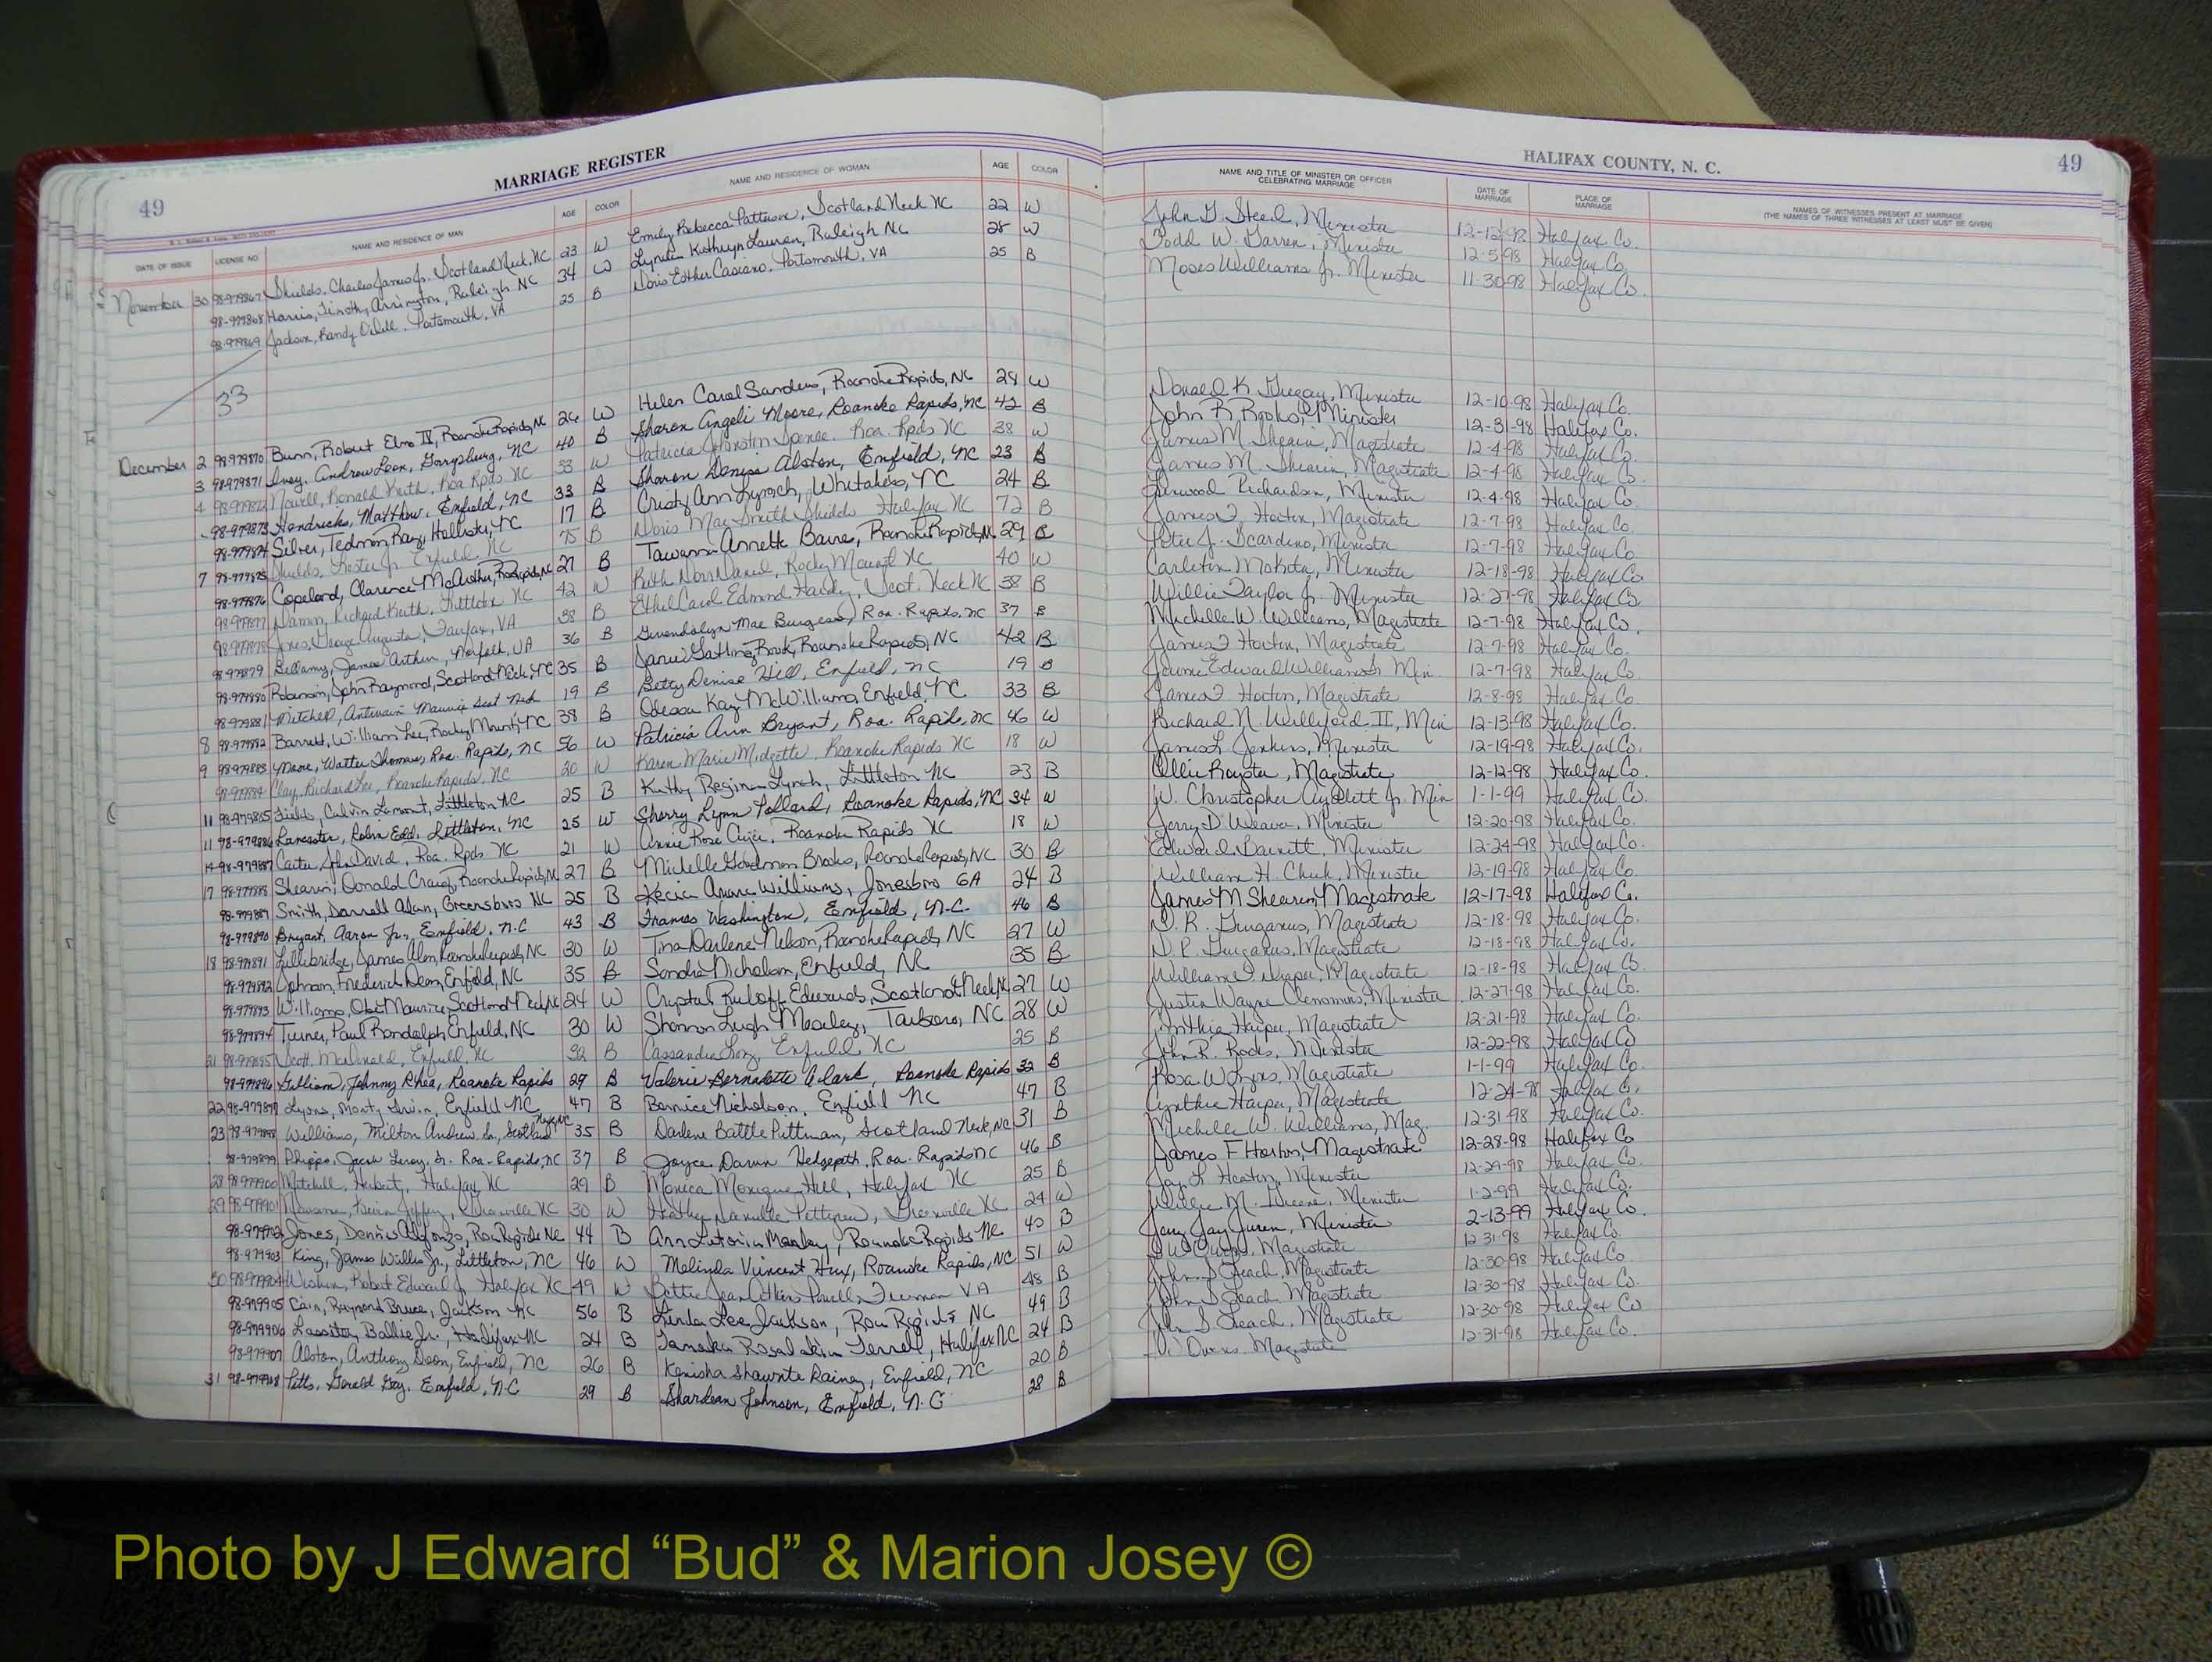 49 MARRIAGE REGISTER
DATE OF ISSUE LICENSE NO NAME AND RESIDENCE OF MAN AGE COLOR NAME AND RESIDENCE OF WOMAN AGE COLOR
November 30 98-979867 Shields, Charles James Jr. Scotland Neck, NC 23 W Emily Rebecca Patterson, Scotland Neck NC 22 W
98-979868 Harris, Timothy Arrington, Raleigh NC 34 W Kathryn Lauren, Raleigh NC 28 W
98-979869 Jackson, Randy Odell, Portsmouth, VA 25 B Doris Esther Casiano, Portsmouth, VA 25 B
33
December 2 98-979870 Bunn, Robert Elmo IV, Roanoke Rapids, NC 26 W Helen Carol Sanders, Roanoke Rapids, NC 28 W
3 98-979871 Ivey, Andrew Leon, Garysburg, NC 40 B Sharon Angeli Moore, Roanoke Rapids, NC 42 B
4 98-979872 Nowell, Ronald Keith, Roa Rpds NC 53 W Patricia Johnston Spence, Roa. Rpds NC 38 W
98-979873 Hendricks, Matthew, Enfield, NC 33 B Sharon Denise Alston, Enfield, NC 23 B
98-979874 Silver, Tedmon Ray, Hollister, NC 17 B Cristy Ann Lynch, Whitakers, NC 24 B
7 98-979875 Shields, Lester Jr. Enfield NC 75 B Doris Mae Smith Shields Halifax NC 72 B
98-979876 Copeland, Clarence McArthur, Ro Rapids, NC 27 B Tawanna Annette Barnes, Roanoke Rapids, NC 29 B
98-979877 Richard Keith, Littleton NC 42 W Ruth Daniel, Rocky Mount NC 40 W
98-979878 Jones, George Augusta, Fairfax, VA 38 B Ethel Carol Edmond Hardy, Scot. Neck NC 38 B
98-979879 Bellamy, James Arthur, Norfolk, VA 36 B Gwendolyn Mae Burgess, Roa. Rapids, NC 37 B
98-979880 Robinson, John Raymond, Scotland Neck, NC 35 B Janie Gatling Rook, Roanoke Rapids, NC 42 B
98-979881 Mitchell, Antwain Maurice Scot Neck 19 B Betty Denise Hill, Enfield, NC 19 B
8 98-979882 Barrett, William Lee, Rocky Mount, NC 38 B Odessa Kay McWilliams, Enfield NC 33 B
9 98-979883 Moore, Walter Thomas, Roa. Rapids, NC 56 W Patricia Ann Bryant, Roa. Rapids, NC 46 W
98-979884 Clay, Richard Lee, Roanoke Rapids, NC 30 W Karen Marie Midgette, Roanoke Rapids NC 18 W
11 98-979885 Fields, Calvin Lamont, Littleton NC 25 B Kathy Regina Lynch, Littleton NC 23 B
11 98-979886 Lancaster, Robin Edd, Littleton, NC 25 W Sherry Lynn Pollard, Roanoke Rapids, NC 34 W
14 98-979887 Carter, John David, Roa. Rpds. NC 21 W Annie Rose, Roanoke Rapids NC 18 W
17 98-979888 Shearin, Donald Craig, Roanoke Rapids, NC 27 B Michelle Goodman Brooks, Roanoke Rapids, NC 30 B
98-979889 Smith, Darrell Alan, Greensboro NC 25 B Kecia Williams, Jonesboro GA 24 B
98-979890 Bryant, Aaron Jr., Enfield, N.C 43 B Frances Washington, Enfield, N.C. 46 B
18 98-979891 Lillibridge, James Alan, Roanoke Rapids, NC 30 W Tina Darlene Nelson, Roanoke Rapids, NC 27 W
98-979892 Frederick Dean, Enfield, NC 35 B Sondra Nicholson, Enfield, NC 35 B
98-979893 Williams, Obie Maurice, Scotland Neck, NC 24 W Crystal Ruloff Edwards, Scotland Neck, NC 27 W
98-979894 Turner, Paul Randolph, Enfield, NC 30 W Shannon Leigh Moseley, Tarboro, NC 28 W
21 98-979895 Scott, McDonald, Enfield, NC 32 B Cassandra, Enfield NC 25 B
98-979896 Gilliam, Johnny Rhea, Roanoke Rapids 29 B Valerie Bernadette Clark, Roanoke Rapids 32 B
22 98-979897 Lyons, Monty Irvin, Enfield NC 47 B Bernice Nicholson, Enfield NC 47 B
23 98-979898 Williams, Milton Andrew Sr., Scotland Neck, NC 35 B Darlene Battle Pittman, Scotland Neck, NC 31 B
98-979899 Phipps, Jacob Leroy, Sr. Roa. Rapids, NC 37 B Joyce Dawn Hedgepeth, Roa. Rapids NC 46 B
28 98-979900 Mitchell, Halifax NC 29 B Monica Monique Hill, Halifax NC 25 B
29 98-979901 Greenville NC 30 W Heather Danielle Pettipew, Greenville NC 24 W
98-979902 Jones, Dennis Alfonzo, Roa Rapids NC 44 B Ann Letoria Manley, Roanoke Rapids NC 40 B
98-979903 King, James Willis Jr., Littleton, NC 46 W Melinda Vincent Hux, Roanoke Rapids, NC 51 W
30 98-979904 Robert Edward Jr. Halifax NC 49 W Bettie Jean Powell, Freeman VA 48 B
98-979905 Cain, Raymond Bruce, Jackson NC 56 B Linda Lee Jackson, Roa Rapids, NC 49 B
98-979906 Lassiter, Ballie Jr., Halifax NC 24 B Tanaka Terrell, Halifax NC 24 B
98-979907 Alston, Anthony Deon, Enfield, NC 26 B Kenisha Shawnte Rainey, Enfield, NC 20 B
31 98-979908 Pitts, Gerald Gey. Enfield, N.C 29 B Shardean Johnson, Enfield, N.C 28 B
HALIFAX COUNTY, N. C. 49
NAME AND TITLE OF MINISTER OR OFFICER CELEBRATING MARRIAGE DATE OF MARRIAGE PLACE OF MARRIAGE NAMES OF WITNESSES PRESENT AT MARRIAGE
(THE NAMES OF THREE WITNESSES AT LEAST MUST BE GIVEN)
John G. Steed, Minister 12-12-98 Halifax Co.
Todd W. Garren, Minister 12-5-98 Halifax Co.
Moses Williams Jr. Minister 11-30-98 Halifax Co.
Donald K. Gregory, Minister 12-10-98 Halifax Co.
John R. Rooks, Minister 12-31-98 Halifax Co.
James M. Shearin, Magistrate 12-4-98 Halifax Co.
James M. Shearin, Magistrate 12-4-98 Halifax Co.
Linwood Richardson, Minister 12-4-98 Halifax Co
James F. Horton, Magistrate 12-7-98 Halifax Co
Peter J. Scardino, Minister 12-7-98 Halifax Co
Carleton, Minister 12-18-98 Halifax Co
Willie Taylor Jr. Minister 12-27-98 Halifax Co
Michelle W. Williams, Magistrate 12-7-98 Halifax Co.
James F Horton, Magistrate 12-7-98 Halifax Co.
Edward Williams Min. 12-7-98 Halifax Co.
James F Horton, Magistrate 12-8-98 Halifax Co
Richard N. Williford II, Min 12-13-98 Halifax Co.
James L. Jenkins, Minister 12-19-98 Halifax Co.
Ollie Royster, Magistrate 12-12-98 Halifax Co.
W. Christopher Aydlett Jr. Min 1-1-99 Halifax Co.
Jerry D. Weaver, Minister 12-20-98 Halifax Co.
Edward Barnett, Minister 12-24-98 Halifax Co.
William H. Cheek, Minister 12-19-98 Halifax Co.
James M Shearin, Magistrate 12-17-98 Halifax Co.
D. R. Gurganus, Magistrate 12-18-98 Halifax Co.
D. R. Gurganus, Magistrate 12-18-98 Halifax Co.
William F. Draper, Magistrate 12-18-98 Halifax Co
Justin Wayne Clemmons, Minister 12-27-98 Halifax Co.
Cynthia Harper, Magistrate 12-21-98 Halifax Co.
John R. Rooks, Minister 12-22-98 Halifax Co
Rosa W. Lyons, Magistrate 1-1-99 Halifax Co.
Cynthia Harper, Magistrate 12-24-98 Halifax Co.
Michelle W. Williams, Mag. 12-31-98 Halifax Co.
James F Horton, Magistrate 12-28-98 Halifax Co
Jay L. Heaton, Minister 12-29-98 Halifax Co.
Willie M. Greene, Minister 1-2-99 Halifax Co.
Jerry Jay, Minister 2-13-99 Halifax Co.
Magistrate 12-31-98 Halifax Co.
John S Leach, Magistrate 12-30-98 Halifax Co
John S Leach, Magistrate 12-30-98 Halifax Co.
John S Leach, Magistrate 12-30-98 Halifax Co
Owens, Magistrate 12-31-98 Halifax Co.
Photo by J Edward “Bud” & Marion Josey ©